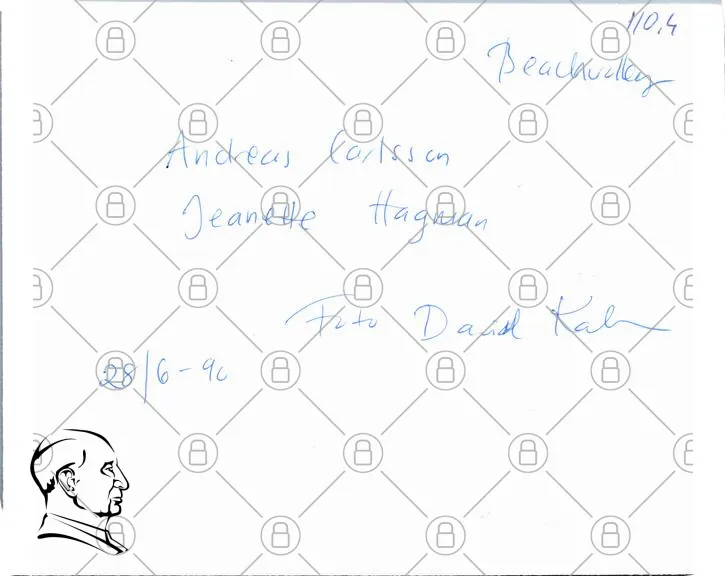 110,4
Beachvolley
Andreas Carlsson
Jeanette Hagman
Foto David
28/6-90